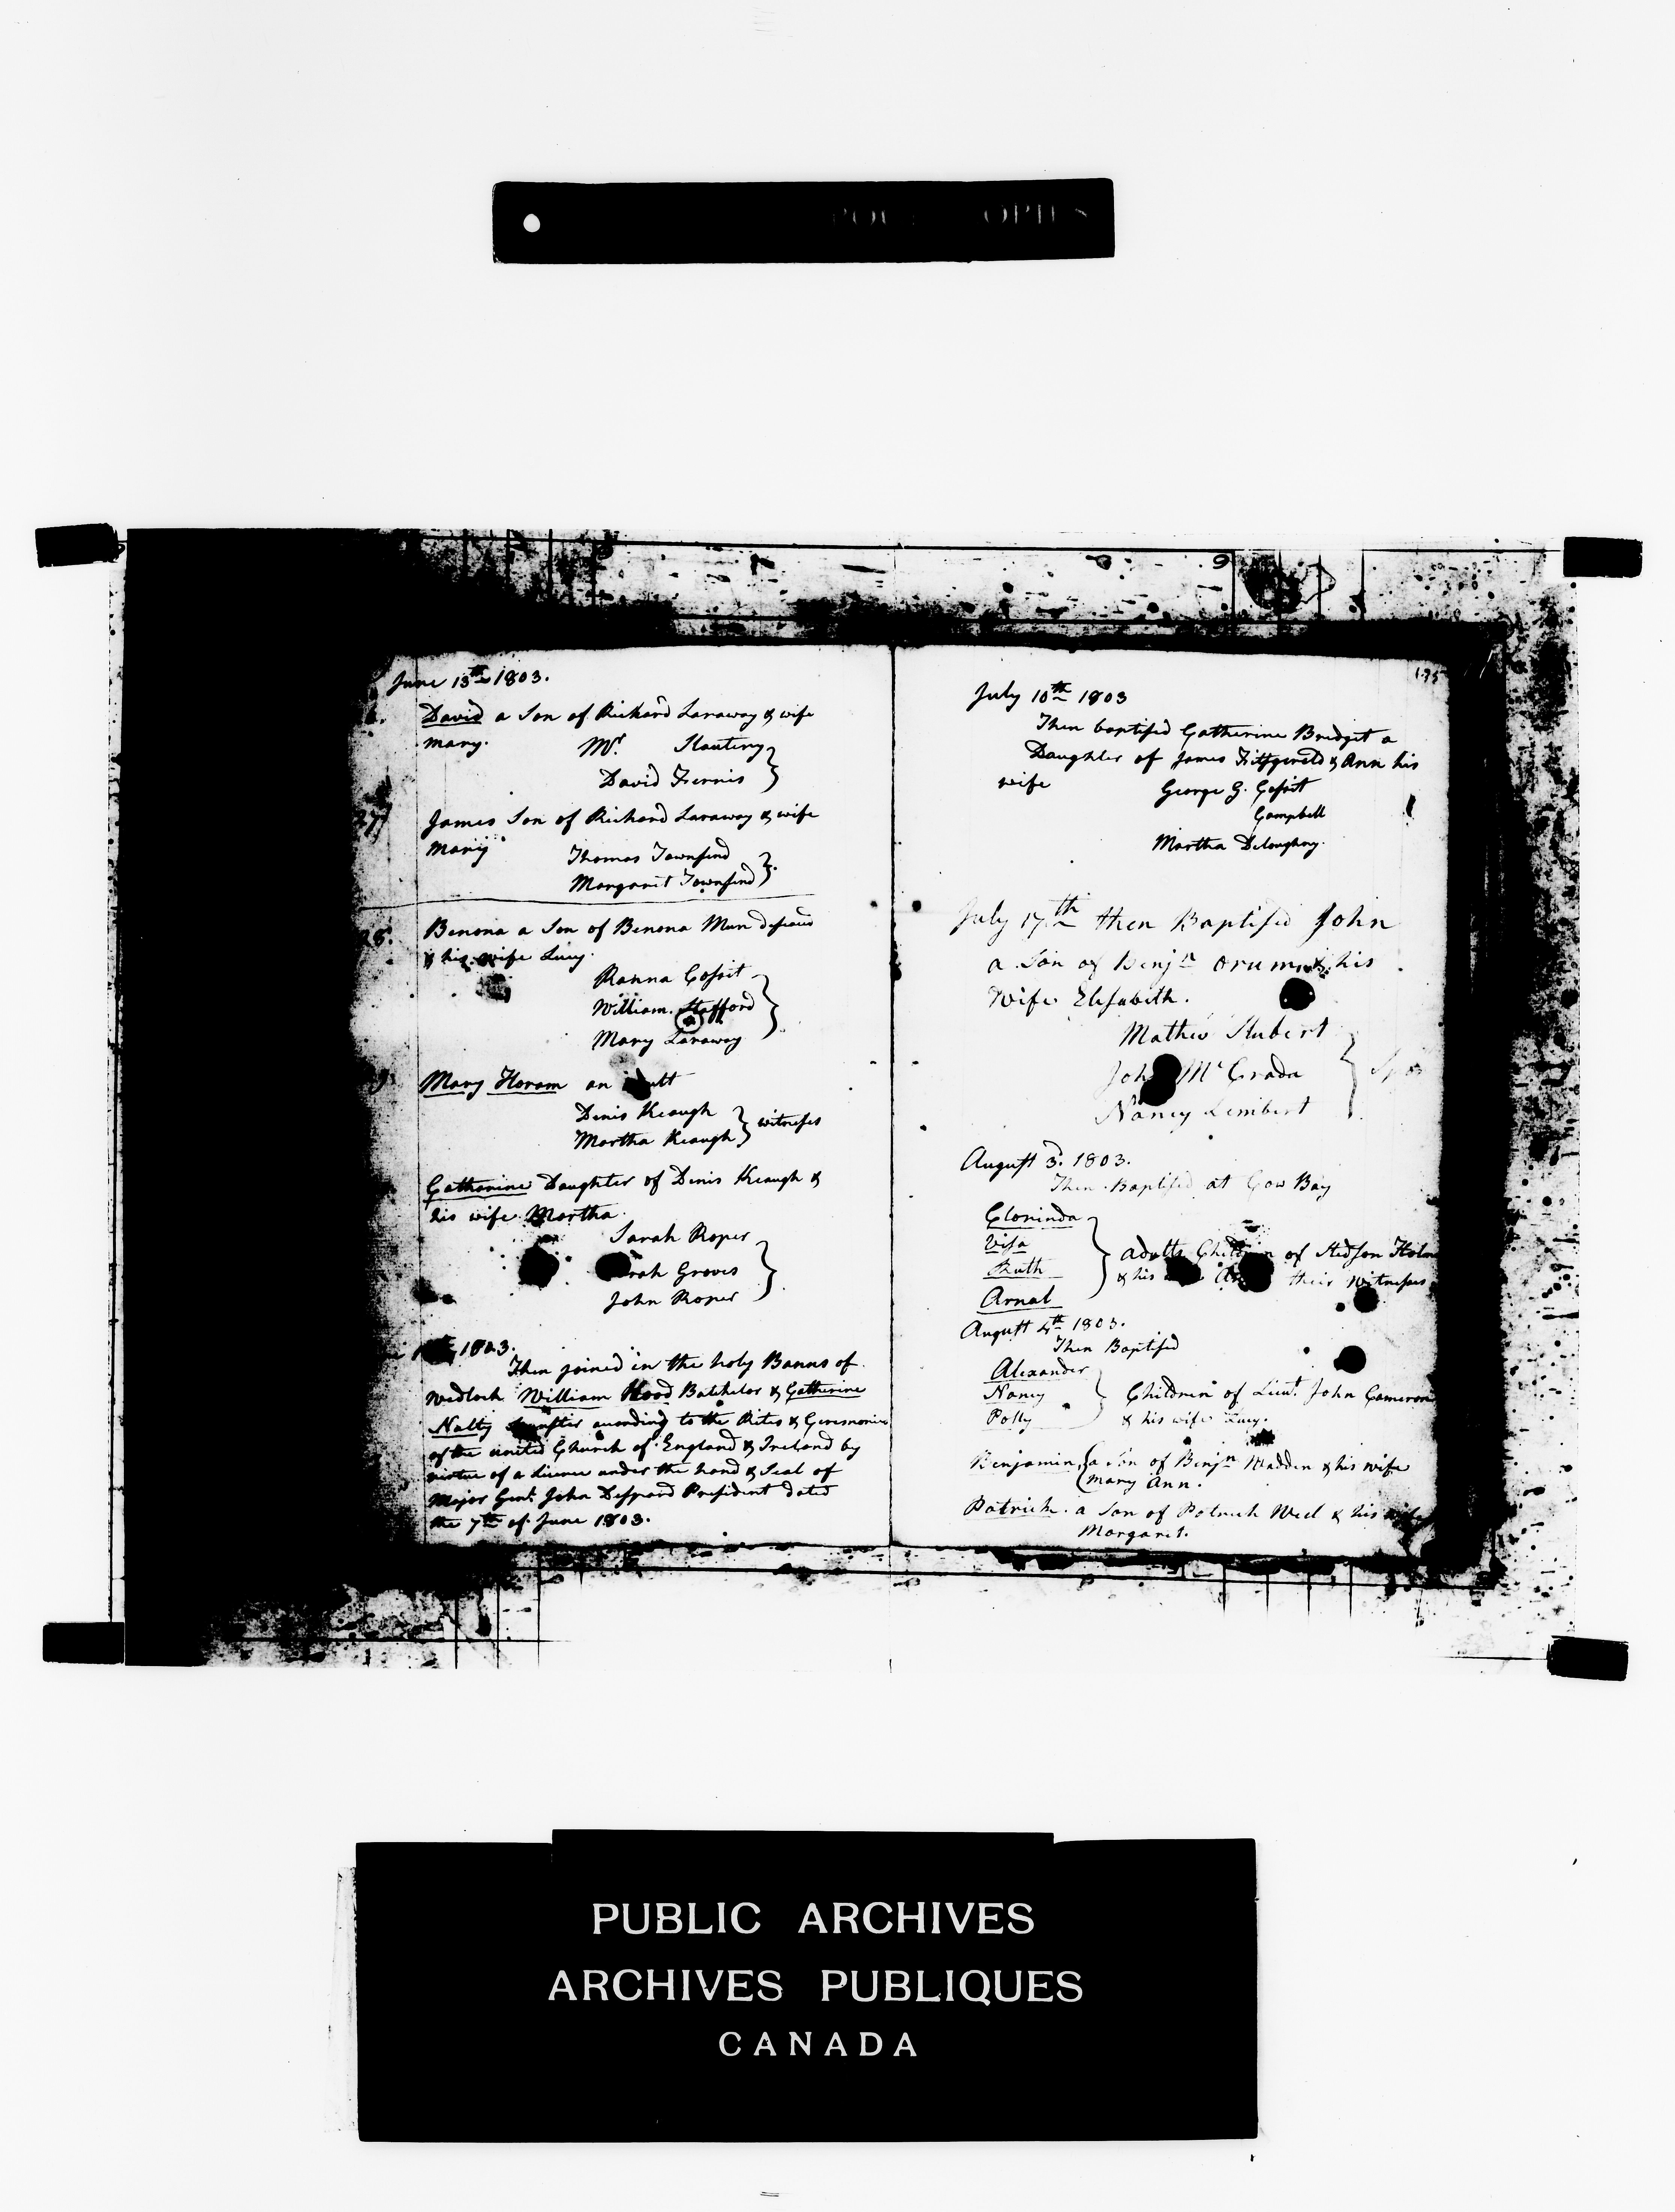 June 13th 1803.
David a Son of Richard Laraway & wife
Mary. Mr. Slautery
David Fennis
27 James Son of Richard Laraway & wife
Mary Thomas Townsend
Margaret Townsend
28. Benona a Son of Benona Mun deceased
& his wife Lucy.
Ranna Cossit
William Stafford
Mary Laraway
Mary Horam an
Denis Keaugh
Martha Keaugh witnesses
Catharine Daughter of Denis Keaugh &
his wife Martha.
Sarah Roper
Groves
John Roper
1803.
Then joined in the holy Banns of
Wedlock William Hood Batchelor & Catherine
Nalty according to the Rites & Ceremonies
of the united Church of England & Ireland by
virtue of a Licence under the hand & Seal of
Major Genl. John Despard President dated
the 7th of June 1803.
195
July 10th 1803
Then baptised Catherine Bridget a
Daughter of James Fitzgerald & Ann his
wife George G. Cossit
Campbell
Martha Deloughry.
July 17th then Baptised John
a Son of Benjn Orum & his
Wife Elisabeth.
Mathew Hubert
John McGrada
Nancy Lembert
August 3d. 1803.
Then Baptised at Cow Bay
Clorinda
Visa
Ruth
Arnal
adults Children of Stedson
& his their Witnesses
August 4th 1803.
Then Baptised
Alexander
Nancy
Polly
Children of Lieut. John Cameron
& his wife Lucy.
Benjamin a Son of Benjn Madden & his wife
Mary Ann.
Patrick. a Son of Patrick & his wife
Margaret.
PUBLIC ARCHIVES
ARCHIVES PUBLIQUES
CANADA